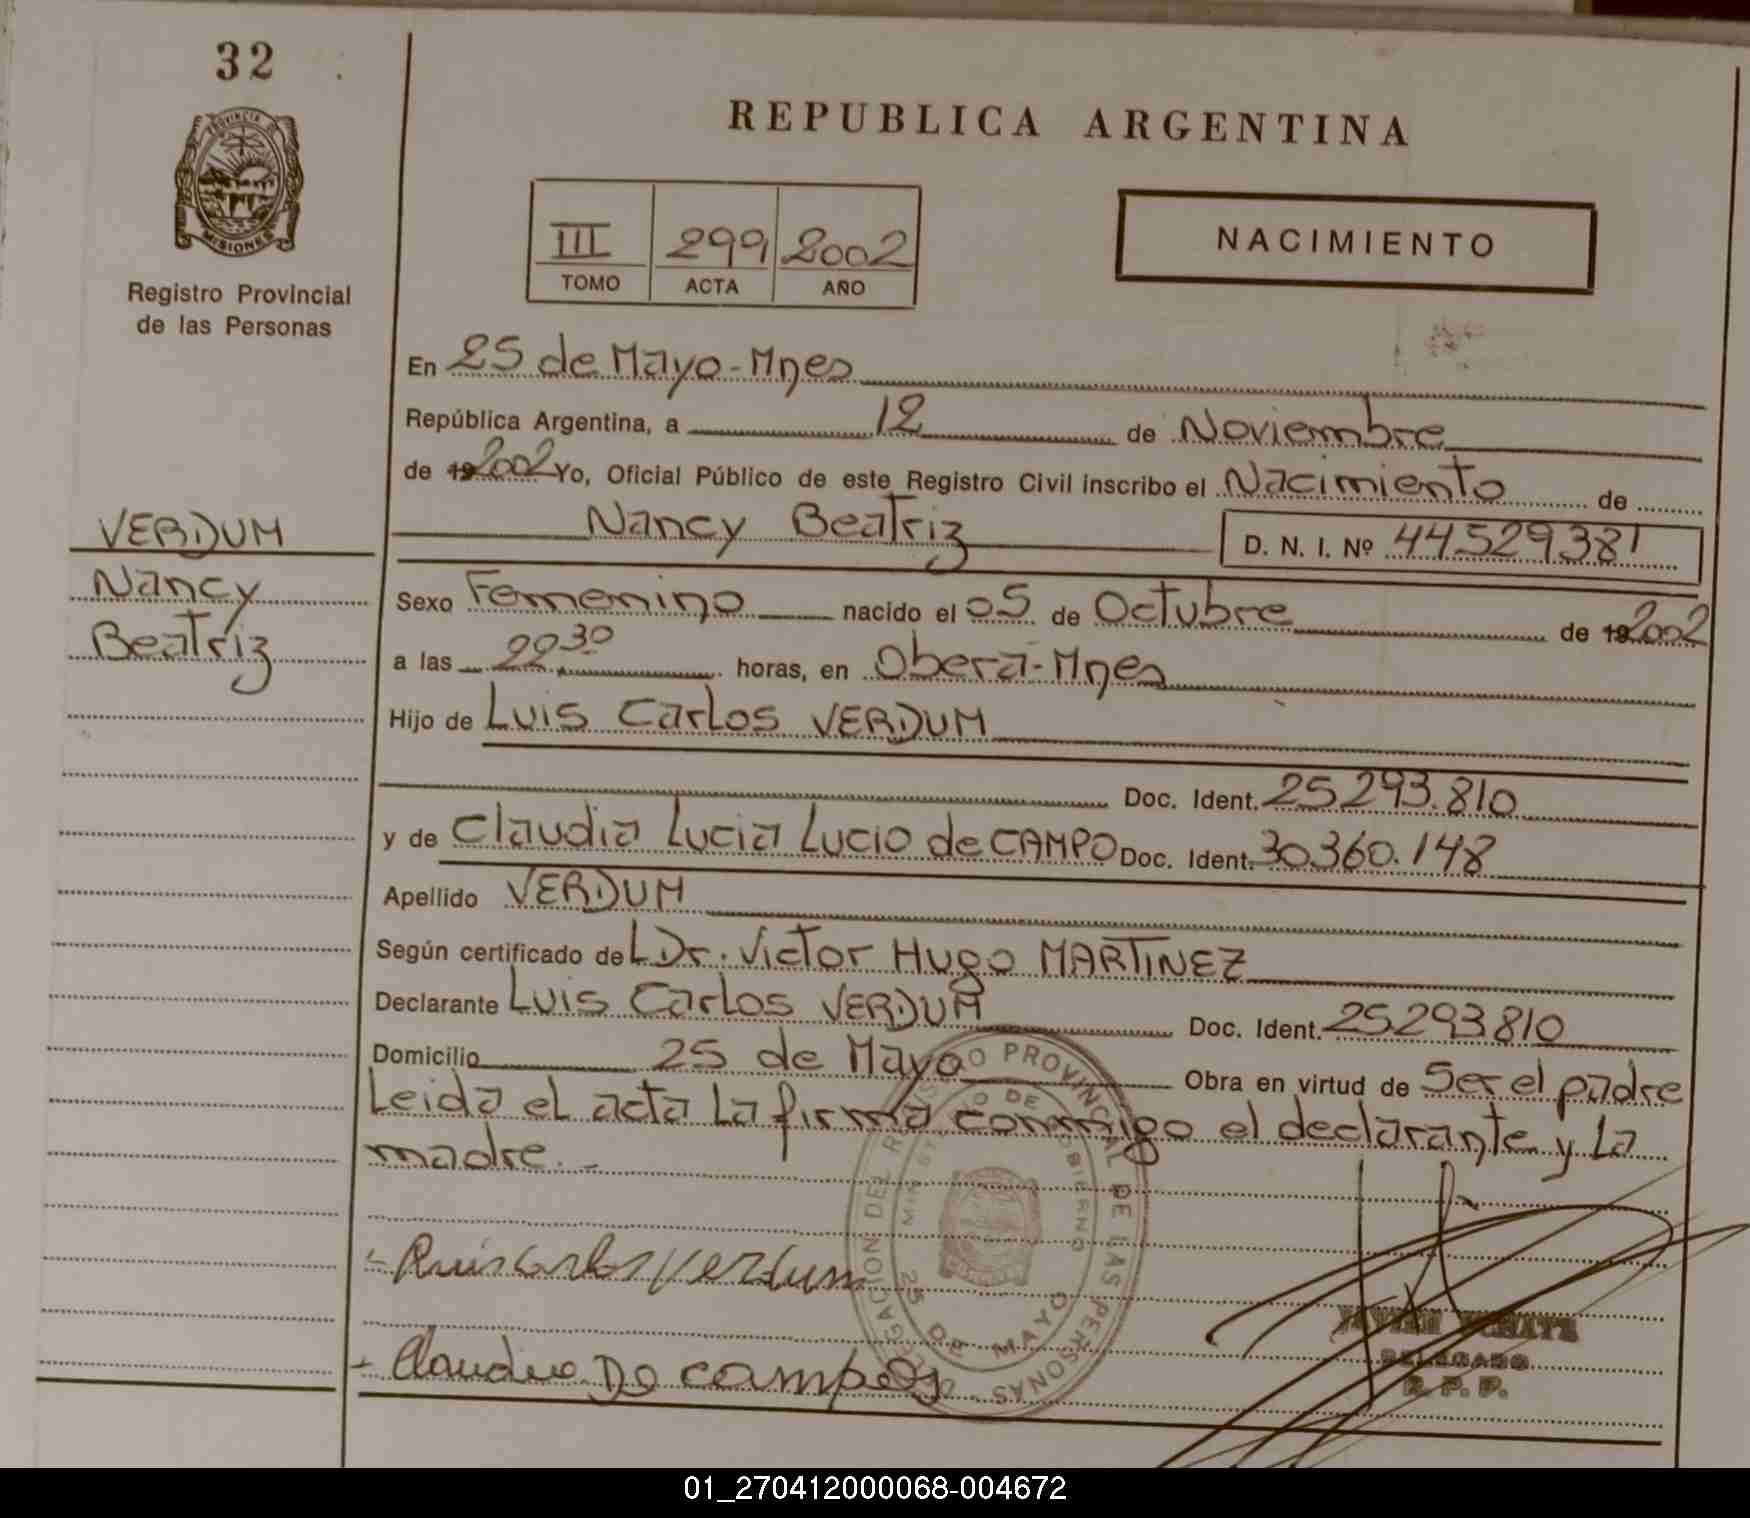 32
PROVINCIA DE
MISIONES
Registro Provincial
de las Personas
VERDUM
Nancy
Beatriz
REPUBLICA ARGENTINA
III 299 2002
TOMO ACTA AÑO
NACIMIENTO
En 25 de Mayo-Mnes
República Argentina, a 12 de Noviembre
de 19 2002 Yo, Oficial Público de este Registro Civil inscribo el Nacimiento de
Nancy Beatriz D. N. I. Nº 44529381
Sexo Femenino nacido el 05 de Octubre de 19 2002
a las 22 30 horas, en Oberá-Mnes
Hijo de Luis Carlos VERDUM
Doc. Ident. 25293.810
y de Claudia Lucia Lucio de CAMPO Doc. Ident. 30360.148
Apellido VERDUM
Según certificado de L Dr. Victor Hugo MARTINEZ
Declarante Luis Carlos VERDUM Doc. Ident. 25293810
Domicilio 25 de Mayo Obra en virtud de Ser el padre
Leida el acta la firma conmigo el declarante y la
madre.-
- Luis Carlos Verdum
- Claudia De campos
DELEGACION DEL REGISTRO PROVINCIAL DE LAS PERSONAS
MINISTERIO DE GOBIERNO
25 DE MAYO
DELEGADO
R. P. P.
01_270412000068-004672